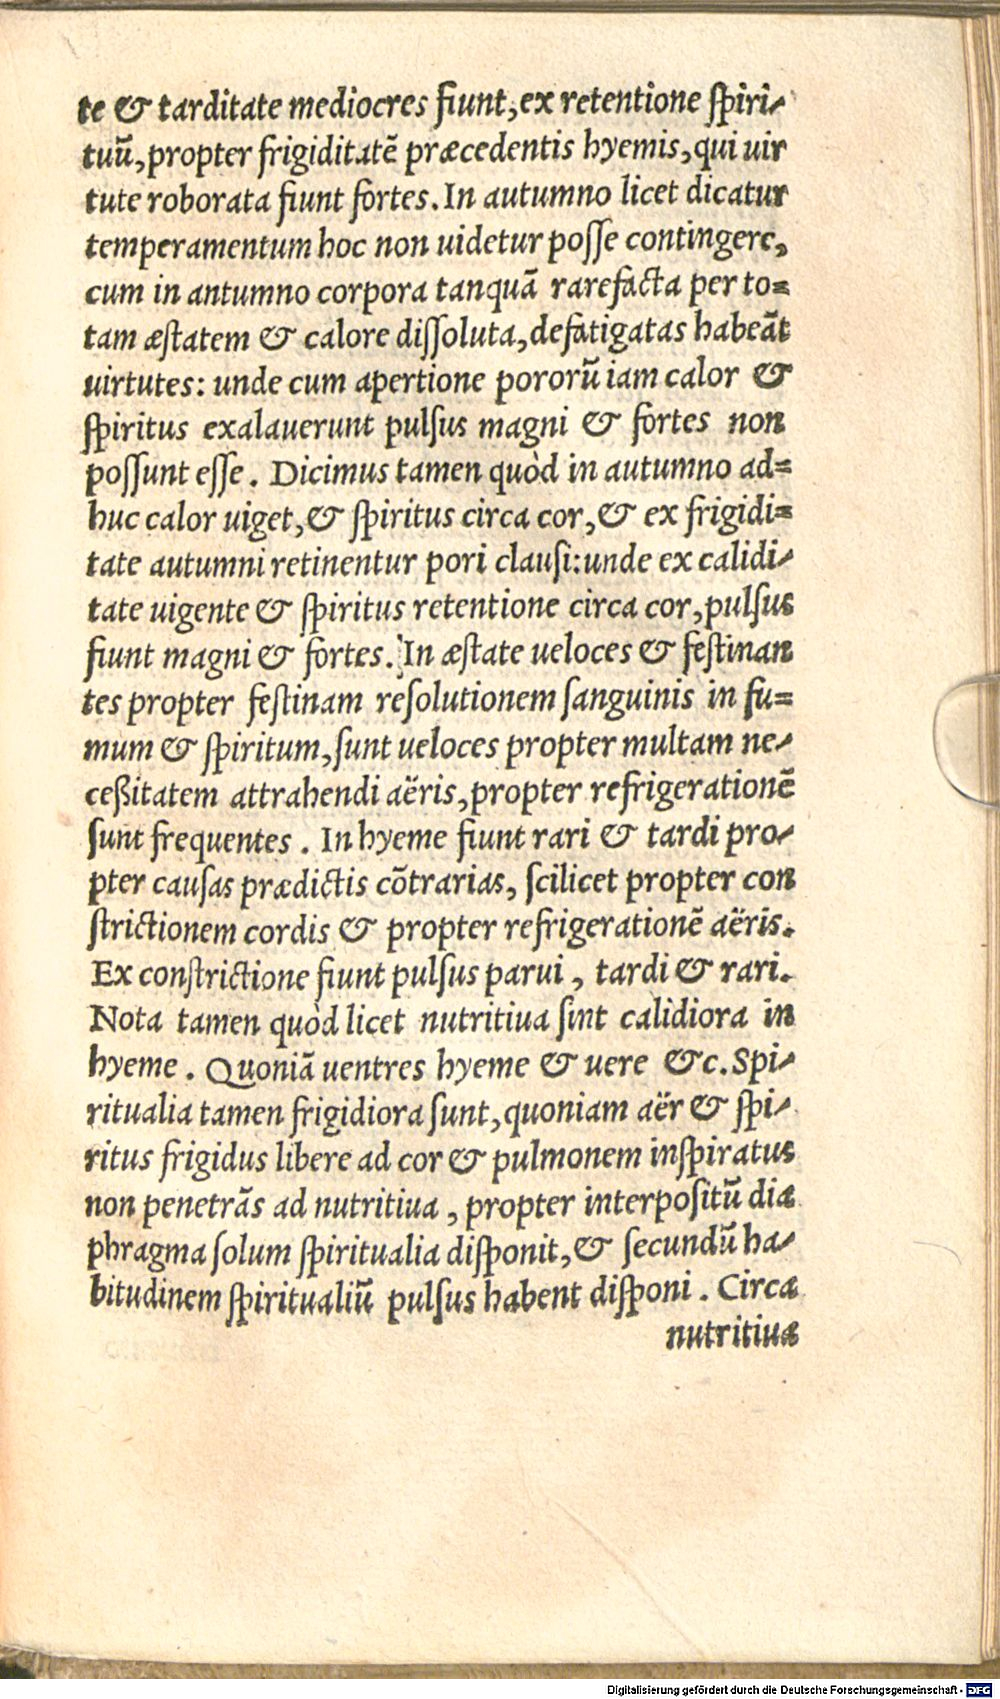 te & tarditate mediocres fiunt, ex retentione ſpiri-
tuū, propter frigiditatē præcedentis hyemis, qui uir
tute roborata fiunt fortes. In autumno licet dicatur
temperamentum hoc non uidetur poſſe contingere,
cum in antumno corpora tanquā rarefacta per to-
tam æſtatem & calore diſſoluta, defatigatas habeāt
uirtutes: unde cum apertione pororū iam calor &
ſpiritus exalauerunt pulſus magni & fortes non
poſſunt eſſe. Dicimus tamen quòd in autumno ad-
huc calor uiget, & ſpiritus circa cor, & ex frigidi-
tate autumni retinentur pori clauſi: unde ex calidi-
tate uigente & ſpiritus retentione circa cor, pulſus
fiunt magni & fortes. In æſtate ueloces & feſtinan
tes propter feſtinam reſolutionem ſanguinis in fu-
mum & ſpiritum, ſunt ueloces propter multam ne-
ceßitatem attrahendi aëris, propter refrigerationē
ſunt frequentes. In hyeme fiunt rari & tardi pro-
pter cauſas prædictis cōtrarias, ſcilicet propter con
ſtrictionem cordis & propter refrigerationē aëris.
Ex conſtrictione fiunt pulſus parui, tardi & rari.
Nota tamen quòd licet nutritiua ſint calidiora in
hyeme. Quoniā uentres hyeme & uere &c. Spi-
ritualia tamen frigidiora ſunt, quoniam aër & ſpi-
ritus frigidus libere ad cor & pulmonem inſpiratus
non penetrās ad nutritiua, propter interpoſitū dia
phragma ſolum ſpiritualia diſponit, & ſecundū ha-
bitudinem ſpiritualiū pulſus habent diſponi. Circa
nutritiua
Digitalisierung gefördert durch die Deutsche Forschungsgemeinschaft - DFG